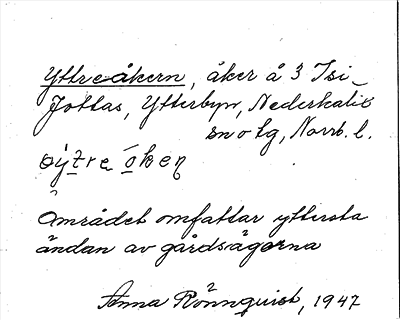 Yttreåkern, åker å 3 Isi_
Jottas, Ytterbyn, Nederkalix
sn o tg, Norrb. l.
öy̆tre ōkeņ
Området omfattar yttersta
ändan av gårdsägorna
Anna Rönnquist, 1947